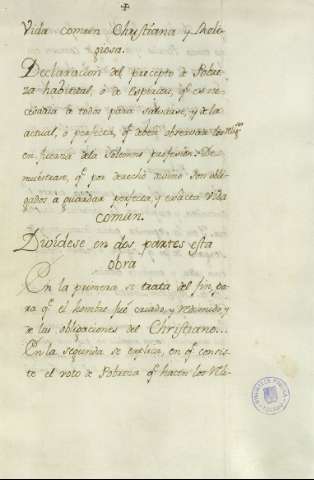 Vida comun Christiana y Reli-
giosa.
Declaracion del precepto de Pobre-
za habitual, ò de espiritu, qe es ne-
cesaria à todos para salvarse, y de la
actual, ò perfecta, qe deben observar los Religsos
en fuerza de la solemne profesion: De-
muestrase, qe por derecho divino son obli-
gados a guardar perfecta, y exacta vida
comun.
Dividese en dos partes esta
obra
En la primera se trata del fin, pa-
ra qe el hombre fué criado, y redimido, y
de las obligaciones del Christiano...
En la segunda se explica, en qe consis-
te el voto de Pobreza qe hacen los Reli-